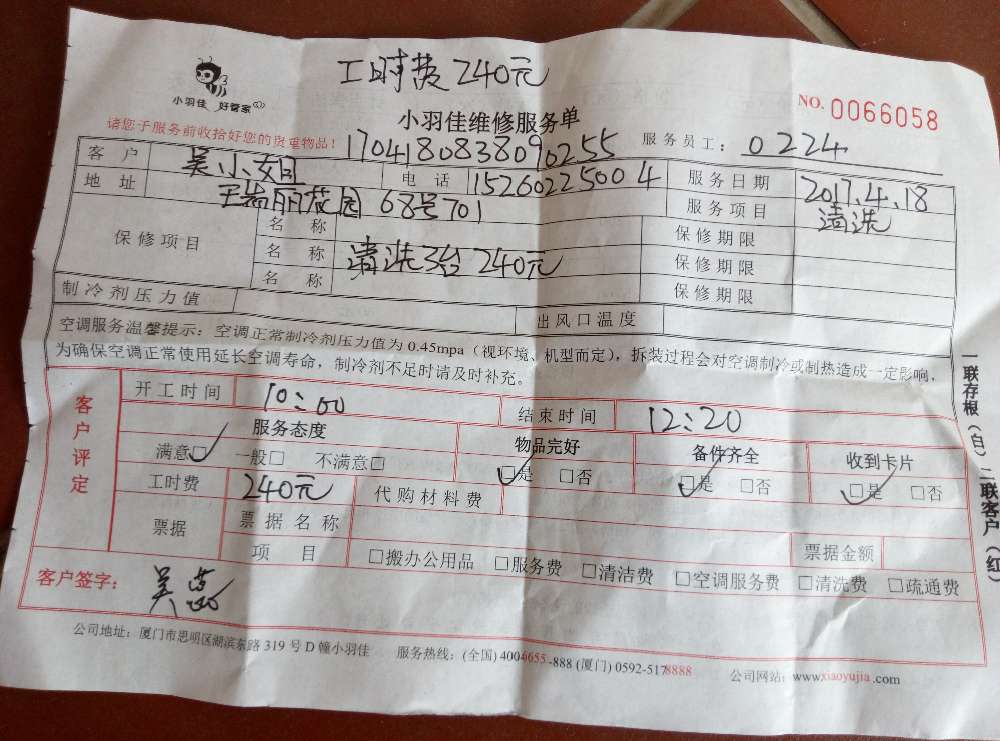 工时费240元
小羽佳 好管家
NO. 0066058
小羽佳维修服务单
请您于服务前收拾好您的贵重物品!
1704180838090255
服务员工: 0224
客户 吴小姐 电话 15260225004 服务日期 2017.4.18
地址 瑞丽花园 68号701 服务项目 清洗
保修项目 名称 保修期限
名称 清洗3台 240元 保修期限
名称 保修期限
制冷剂压力值 出风口温度
空调服务温馨提示:空调正常制冷剂压力值为0.45mpa(视环境、机型而定),拆装过程会对空调制冷或制热造成一定影响,
为确保空调正常使用延长空调寿命,制冷剂不足时请及时补充。
客户评定
开工时间 10:00 结束时间 12:20
服务态度 物品完好 备件齐全 收到卡片
满意□ 一般□ 不满意□ □是 □否 □是 □否 □是 □否
工时费 240元 代购材料费
票据 票据名称 票据金额
项目 □搬办公用品 □服务费 □清洁费 □空调服务费 □清洗费 □疏通费
客户签字: 吴
一联存根(白)二联客户(红)
公司地址:厦门市思明区湖滨东路319号D幢小羽佳 服务热线:(全国)4004655-888(厦门)0592-5178888 公司网站:www.xiaoyujia.com